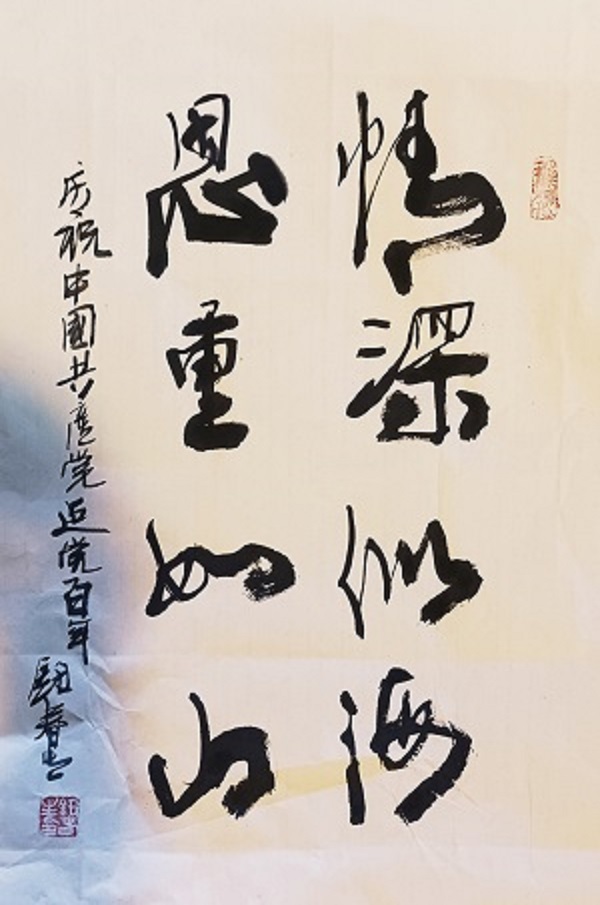 情深似海
恩重如山
庆祝中国共产党建党百年
春书